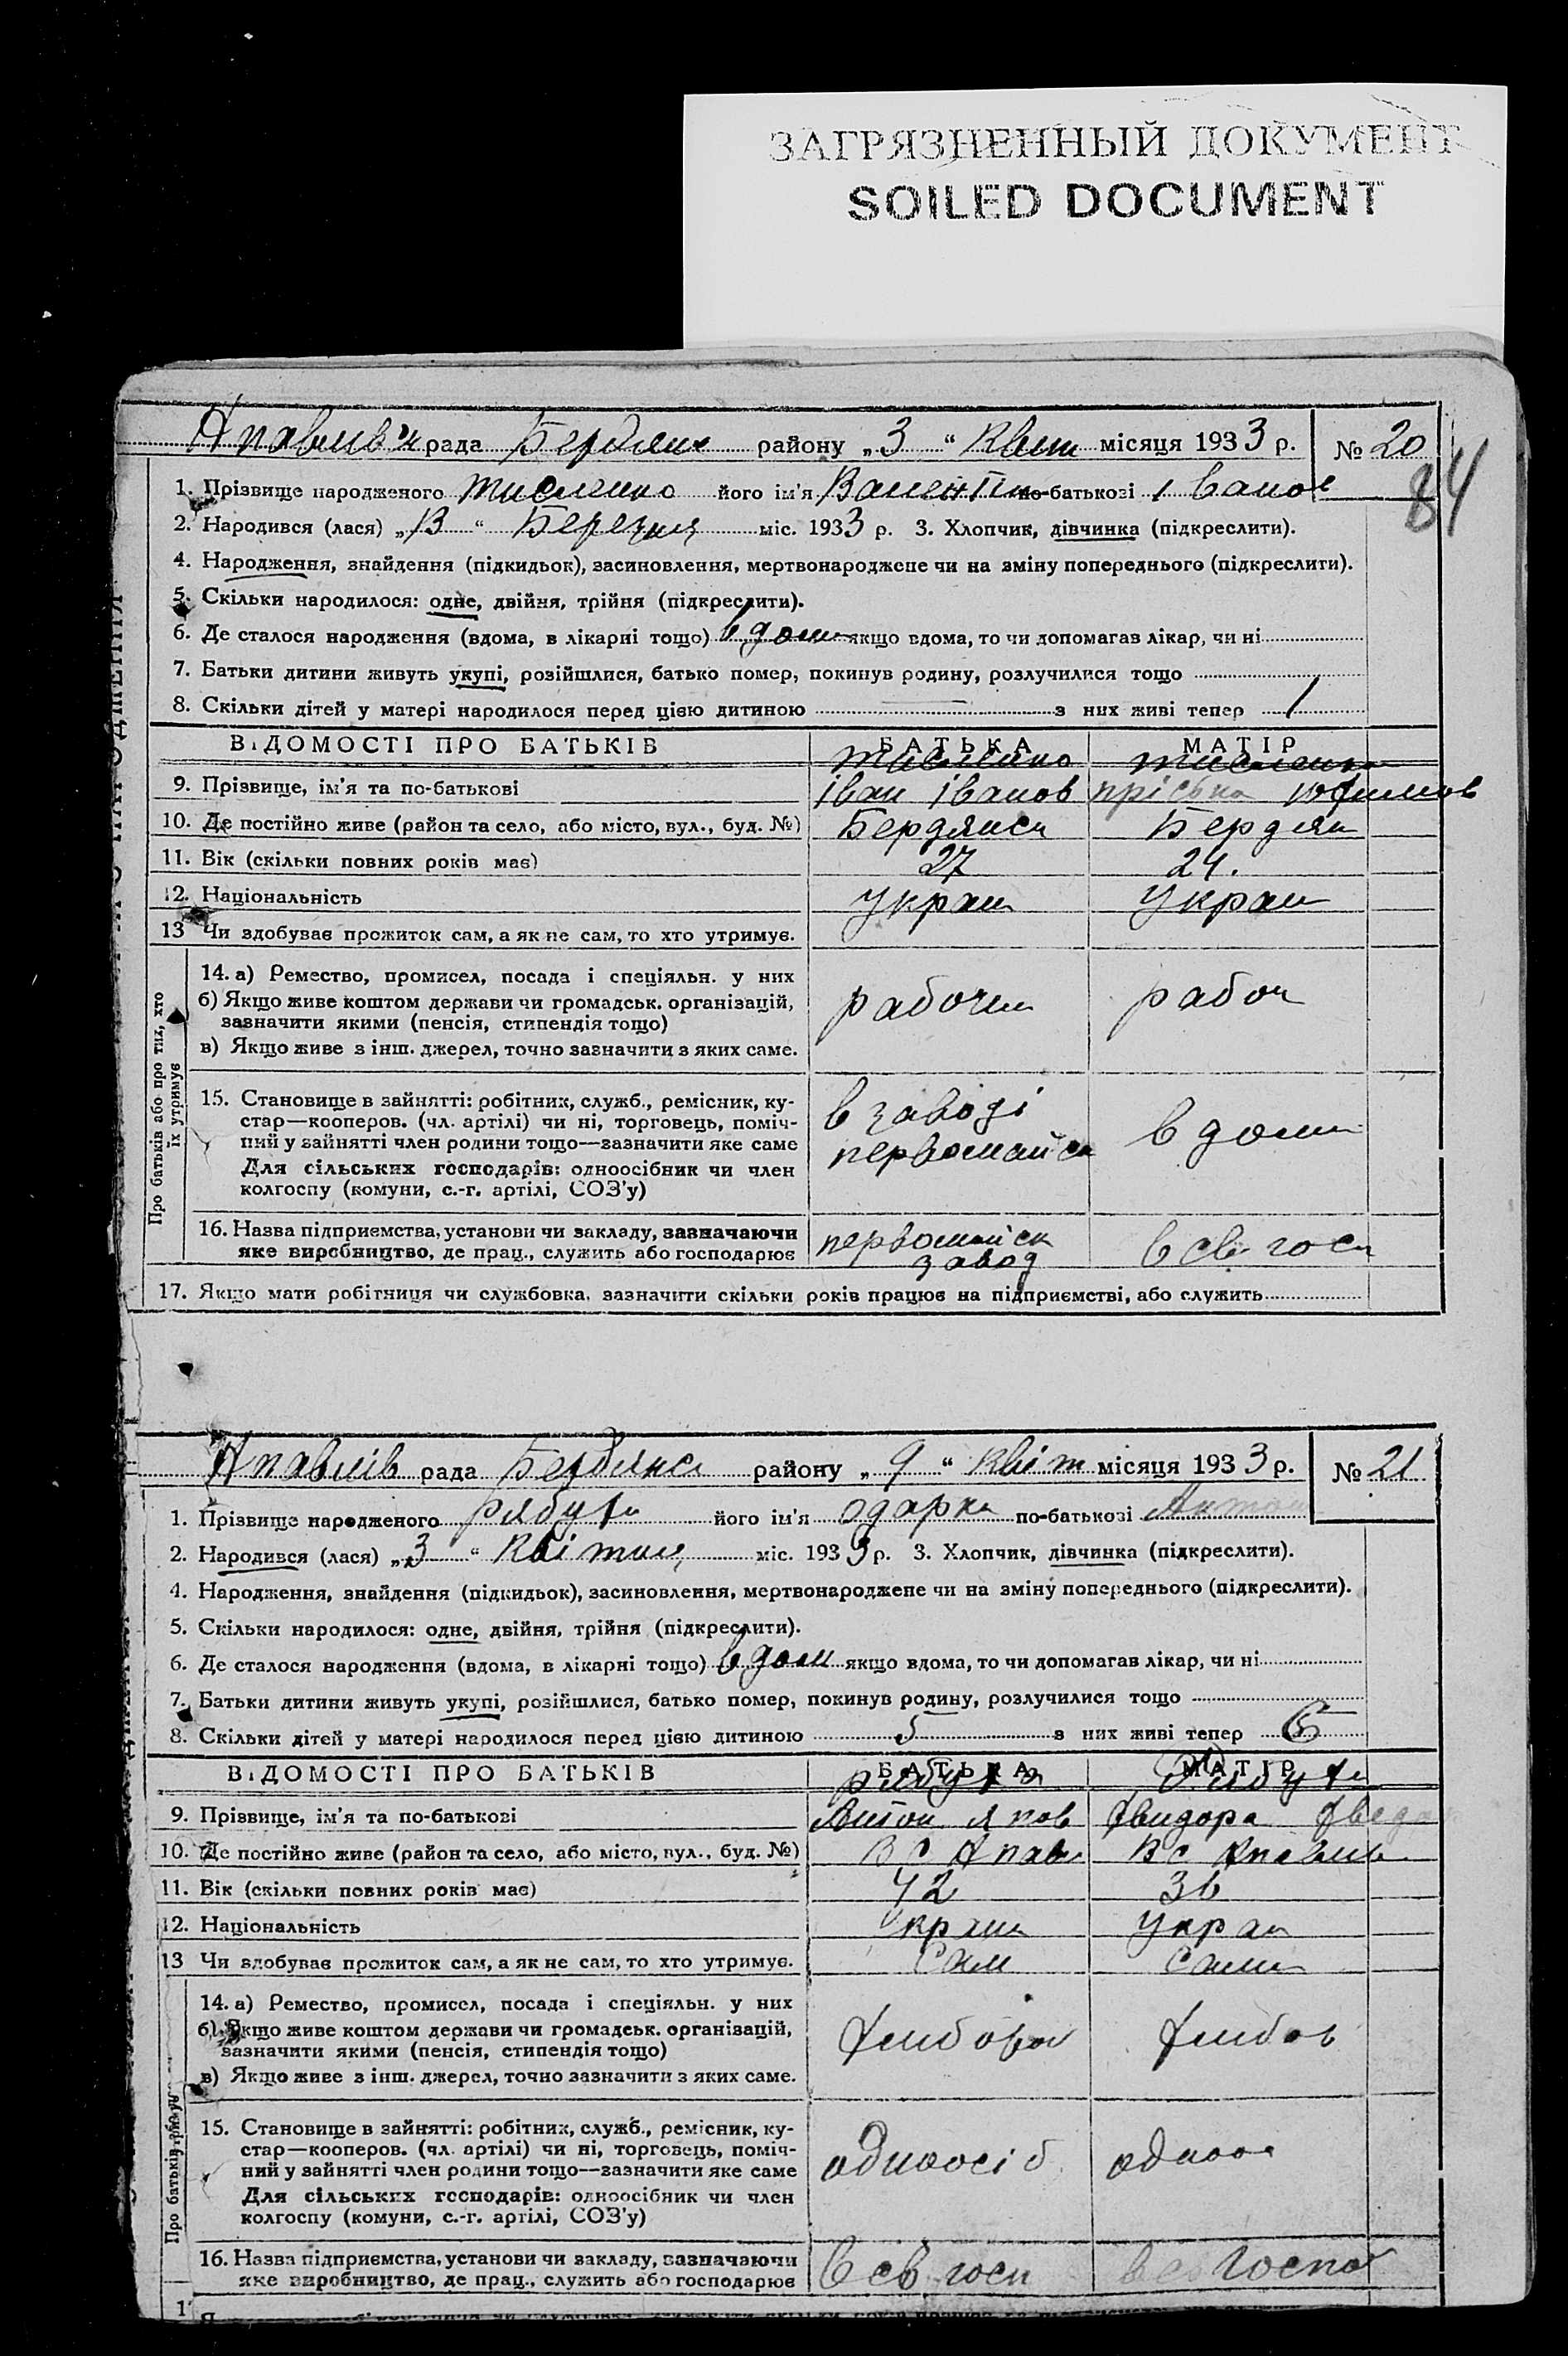 ЗАГРЯЗНЕННЫЙ ДОКУМЕНТ
SOILED DOCUMENT
84
рада Бердянс району „3“ Квіт місяця 1933 р. № 20
1. Прізвище народженого його ім'я Валентін по-батькові Іванов
2. Народився (лася) „13“ Березня міс. 1933 р. 3. Хлопчик, дівчинка (підкреслити).
4. Народження, знайдення (підкидьок), засиновлення, мертвонароджене чи на зміну попереднього (підкреслити).
5. Скільки народилося: одне, двійня, трійня (підкреслити).
6. Де сталося народження (вдома, в лікарні тощо) в доми якщо вдома, то чи допомагав лікар, чи ні
7. Батьки дитини живуть укупі, розійшлися, батько помер, покинув родину, розлучилися тощо
8. Скільки дітей у матері народилося перед цією дитиною — з них живі тепер 1
ВІДОМОСТІ ПРО БАТЬКІВ БАТЬКА МАТІР
9. Прізвище, ім'я та по-батькові Іван Іванов пріська юфимов
10. Де постійно живе (район та село, або місто, вул., буд. №) Бердянск Бердян
11. Вік (скільки повних років має) 27 24.
12. Національність Украи Украи
13 Чи здобуває прожиток сам, а як не сам, то хто утримує.
Про батьків або про тих, хто їх утримує
14. а) Ремество, промисел, посада і спеціяльн. у них
б) Якщо живе коштом держави чи громадськ. організацій,
зазначити якими (пенсія, стипендія тощо)
в) Якщо живе з інш. джерел, точно зазначити з яких саме.
рабочи рабоч
15. Становище в зайнятті: робітник, служб., ремісник, ку-
стар—кооперов. (чл. артілі) чи ні, торговець, поміч-
ний у зайнятті член родини тощо—зазначити яке саме
Для сільських господарів: одноосібник чи член
колгоспу (комуни, с.-г. артілі, СОЗ'у)
в заводі
первомайск в доми
16. Назва підприємства, установи чи закладу, зазначаючи
яке виробництво, де прац., служить або господарює
первомайск
завод в св госп
17. Якщо мати робітниця чи службовка, зазначити скільки років працює на підприємстві, або служить
рада Бердянск району „9“ Квіт місяця 1933 р. № 21
1. Прізвище народженого Рябуха його ім'я Одарка по-батькові Антон
2. Народився (лася) „3“ Квітня міс. 1933 р. 3. Хлопчик, дівчинка (підкреслити).
4. Народження, знайдення (підкидьок), засиновлення, мертвонароджене чи на зміну попереднього (підкреслити).
5. Скільки народилося: одне, двійня, трійня (підкреслити).
6. Де сталося народження (вдома, в лікарні тощо) в дом якщо вдома, то чи допомагав лікар, чи ні
7. Батьки дитини живуть укупі, розійшлися, батько помер, покинув родину, розлучилися тощо
8. Скільки дітей у матері народилося перед цією дитиною 5 з них живі тепер 6
ВІДОМОСТІ ПРО БАТЬКІВ БАТЬКА МАТІР
Рябуха Рябуха
9. Прізвище, ім'я та по-батькові Антон Яков Хвидора Хведо
10. Де постійно живе (район та село, або місто, вул., буд. №) ВС ВС
11. Вік (скільки повних років має) 42 36
12. Національність Украи Украи
13 Чи здобуває прожиток сам, а як не сам, то хто утримує. Сам Сами
Про батьків
14. а) Ремество, промисел, посада і спеціяльн. у них
б) Якщо живе коштом держави чи громадськ. організацій,
зазначити якими (пенсія, стипендія тощо)
в) Якщо живе з інш. джерел, точно зазначити з яких саме.
Хлибороб Хлибор
15. Становище в зайнятті: робітник, служб., ремісник, ку-
стар—кооперов. (чл. артілі) чи ні, торговець, поміч-
ний у зайнятті член родини тощо—зазначити яке саме
Для сільських господарів: одноосібник чи член
колгоспу (комуни, с.-г. артілі, СОЗ'у)
одноосіб одноос
16. Назва підприємства, установи чи закладу, зазначаючи
яке виробництво, де прац., служить або господарює
в св госп в св госпо